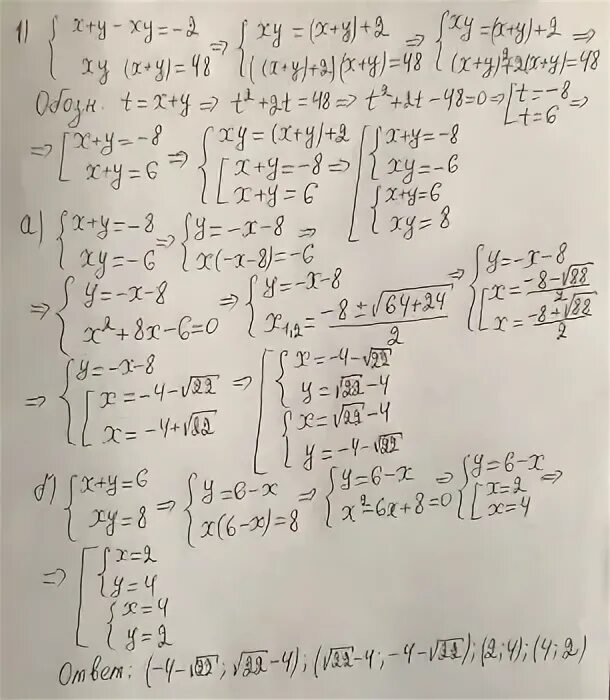 1) { x+y-xy=-2 ⇒ { xy=(x+y)+2 ⇒ { xy=(x+y)+2 ⇒
xy (x+y)=48 ((x+y)+2)(x+y)=48 (x+y)²+2(x+y)=48
Обозн. t=x+y ⇒ t²+2t=48 ⇒ t²+2t-48=0 ⇒ [ t=-8 ⇒
t=6
⇒ [ x+y=-8 ⇒ { xy=(x+y)+2 ⇒ [ { x+y=-8
x+y=6 [ x+y=-8 xy=-6
x+y=6 { x+y=6
xy=8
а) { x+y=-8 ⇒ { y=-x-8 ⇒
xy=-6 x(-x-8)=-6
⇒ { y=-x-8 ⇒ { y=-x-8 ⇒ { y=-x-8
x²+8x-6=0 x₁,₂=(-8±√64+24)/2 [ x=(-8-√88)/2
x=(-8+√88)/2
⇒ { y=-x-8 ⇒ [ { x=-4-√22
[ x=-4-√22 y=√22-4
x=-4+√22 { x=√22-4
y=-4-√22
б) { x+y=6 ⇒ { y=6-x ⇒ { y=6-x ⇒ { y=6-x ⇒
xy=8 x(6-x)=8 x²-6x+8=0 [ x=2
x=4
⇒ [ { x=2
y=4
{ x=4
y=2
Ответ: (-4-√22; √22-4); (√22-4; -4-√22); (2;4); (4;2)